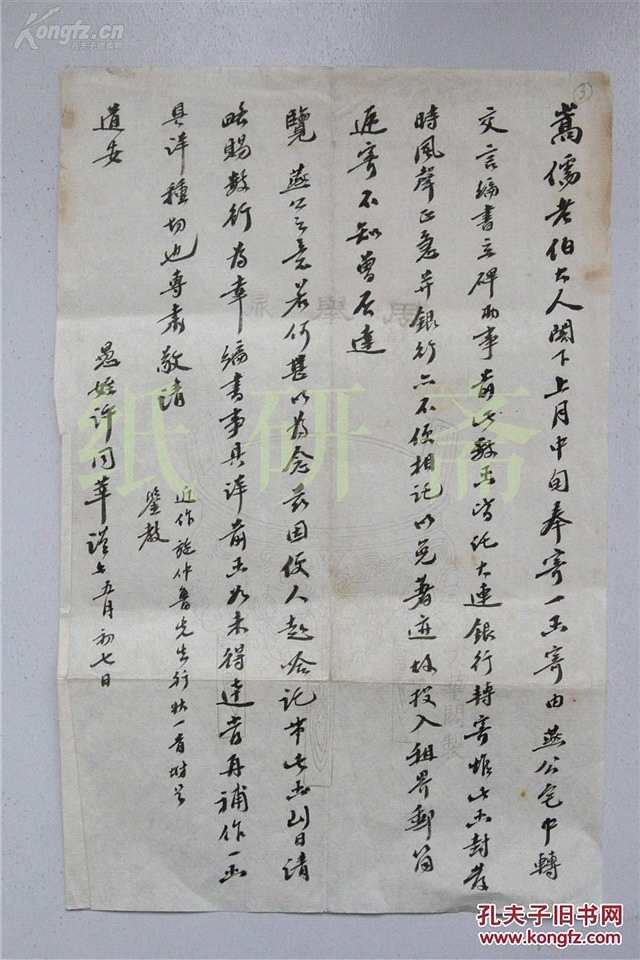 嵩儒老伯大人閣下上月中旬奉寄一函寄由燕公宅中轉
交言編書立碑兩事前此數函皆託大連銀行轉寄惟此函封發
時風聲正急并銀行亦不便相託以免著迹故投入租界郵筒
遞寄不知曾否達
覽燕公之意若何甚以為念茲因便人赴哈託帶此函到日請
略賜數行為幸編書事具詳前函如未得達當再補作一函
具詳種切也專肅敬請
道安
愚姪許同莘謹上五月初七日
近作施仲魯先生行狀一首附呈
鑒教
3
Kongfz.cn
孔夫子旧书网
纸研斋
孔夫子旧书网
www.kongfz.com